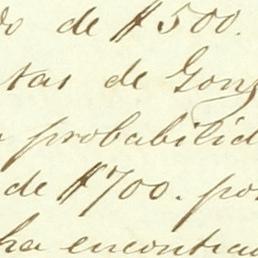 do de $500.
tas de Gonz
probabilid
de $700. po
ha encontra